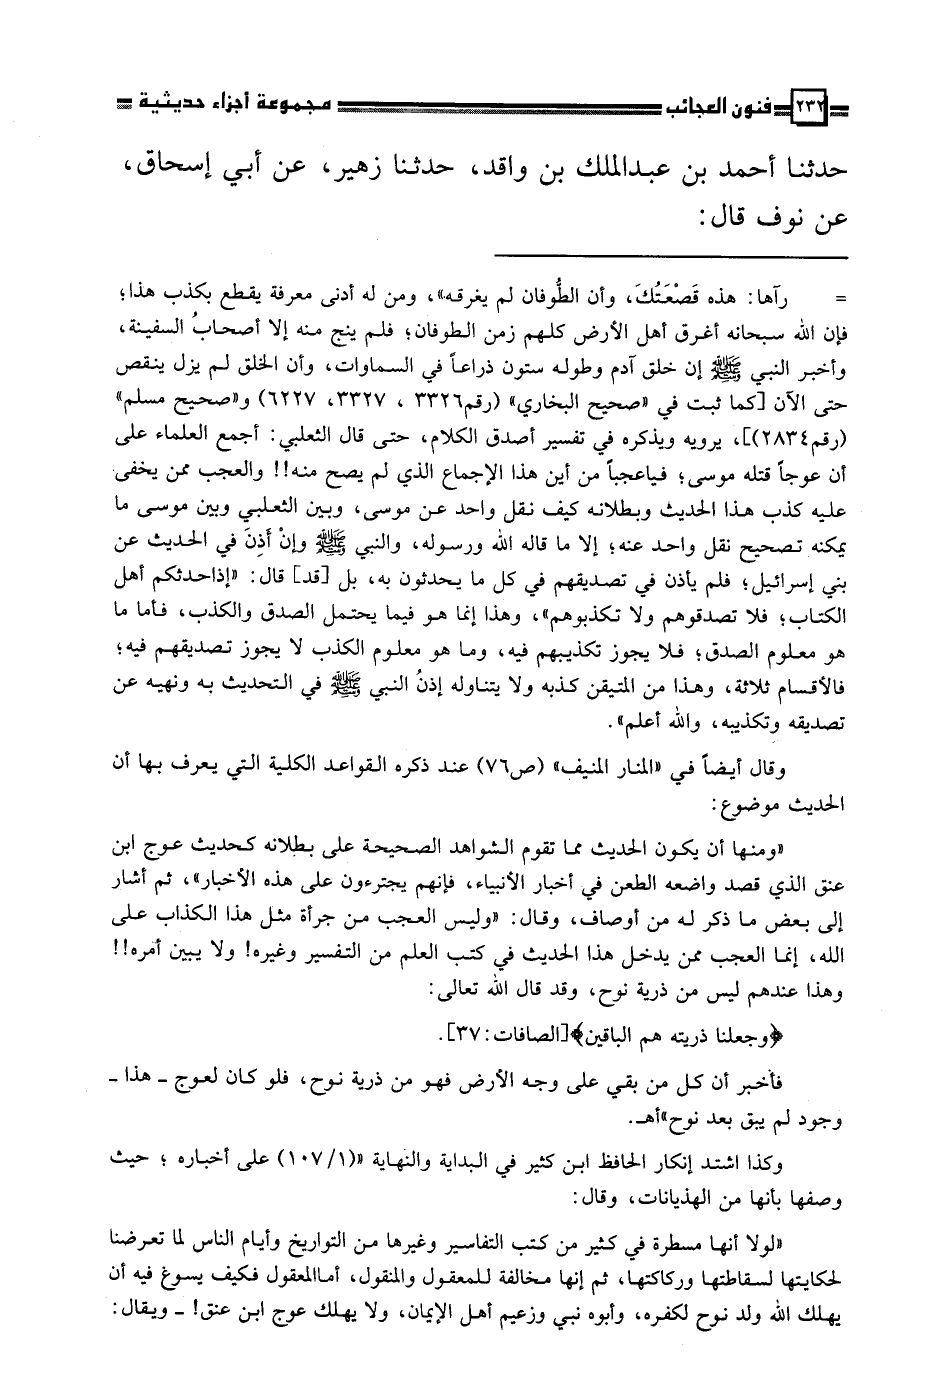 ٢٣٢ فنون العجائب مجموعة أجزاء حديثية
حدثنا أحمد بن عبدالملك بن واقد، حدثنا زهير، عن أبي إسحاق،
عن نوف قال:
= رآها: هذه قَصْعَتُكَ، وأن الطُّوفان لم يغرقه»، ومن له أدنى معرفة يقطع بكذب هذا؛
فإن الله سبحانه أغرق أهل الأرض كلهم زمن الطوفان؛ فلم ينج منه إلا أصحابُ السفينة،
وأخبر النبي ﷺ إن خلق آدم وطوله ستون ذراعاً في السماوات، وأن الخلق لم يزل ينقص
حتى الآن [كما ثبت في «صحيح البخاري» (رقم٣٣٢٦ ، ٣٣٢٧، ٦٢٢٧) و«صحيح مسلم»
(رقم٢٨٣٤)]، يرويه ويذكره في تفسير أصدق الكلام، حتى قال الثعلبي: أجمع العلماء على
أن عوجاً قتله موسى؛ فياعجباً من أين هذا الإجماع الذي لم يصح منه!! والعجب ممن يخفى
عليه كذب هذا الحديث وبطلانه كيف نقل واحد عن موسى، وبين الثعلبي وبين موسى ما
يمكنه تصحيح نقل واحد عنه؛ إلا ما قاله الله ورسوله، والنبي ﷺ وإنْ أَذِنَ في الحديث عن
بني إسرائيل؛ فلم يأذن في تصديقهم في كل ما يحدثون به، بل [قد] قال: «إذاحدثكم أهل
الكتاب؛ فلا تصدقوهم ولا تكذبوهم»، وهذا إنما هو فيما يحتمل الصدق والكذب، فأما ما
هو معلوم الصدق؛ فلا يجوز تكذيبهم فيه، وما هو معلوم الكذب لا يجوز تصديقهم فيه؛
فالأقسام ثلاثة، وهذا من المتيقن كذبه ولا يتناوله إذنُ النبي ﷺ في التحديث به ونهيه عن
تصديقه وتكذيبه، والله أعلم».
وقال أيضاً في «المنار المنيف» (ص٧٦) عند ذكره القواعد الكلية التي يعرف بها أن
الحديث موضوع:
«ومنها أن يكون الحديث مما تقوم الشواهد الصحيحة على بطلانه كحديث عوج ابن
عنق الذي قصد واضعه الطعن في أخبار الأنبياء، فإنهم يجترءون على هذه الأخبار»، ثم أشار
إلى بعض ما ذكر له من أوصاف، وقال: «وليس العجب من جرأة مثل هذا الكذاب على
الله، إنما العجب ممن يدخل هذا الحديث في كتب العلم من التفسير وغيره! ولا يبين أمره!!
وهذا عندهم ليس من ذرية نوح، وقد قال الله تعالى:
﴿وجعلنا ذريته هم الباقين﴾[الصافات: ٣٧].
فأخبر أن كل من بقي على وجه الأرض فهو من ذرية نوح، فلو كان لعوج ـ هذا ـ
وجود لم يبق بعد نوح»أهـ.
وكذا اشتد إنكار الحافظ ابن كثير في البداية والنهاية «(١/ ١٠٧) على أخباره ؛ حيث
وصفها بأنها من الهذيانات، وقال:
«لولا أنها مسطرة في كثير من كتب التفاسير وغيرها من التواريخ وأيام الناس لما تعرضنا
لحكايتها لسقاطتها وركاكتها، ثم إنها مخالفة للمعقول والمنقول، أماالمعقول فكيف يسوغ فيه أن
يهلك الله ولد نوح لكفره، وأبوه نبي وزعيم أهل الإيمان، ولا يهلك عوج ابن عنق! ـ ويقال: